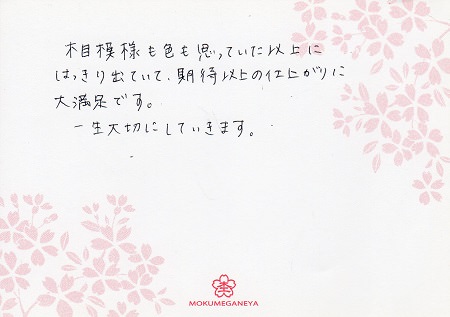 木目模様も色も思っていた以上に
はっきり出ていて、期待以上の仕上がりに
大満足です。
一生大切にしていきます。
MOKUMEGANEYA